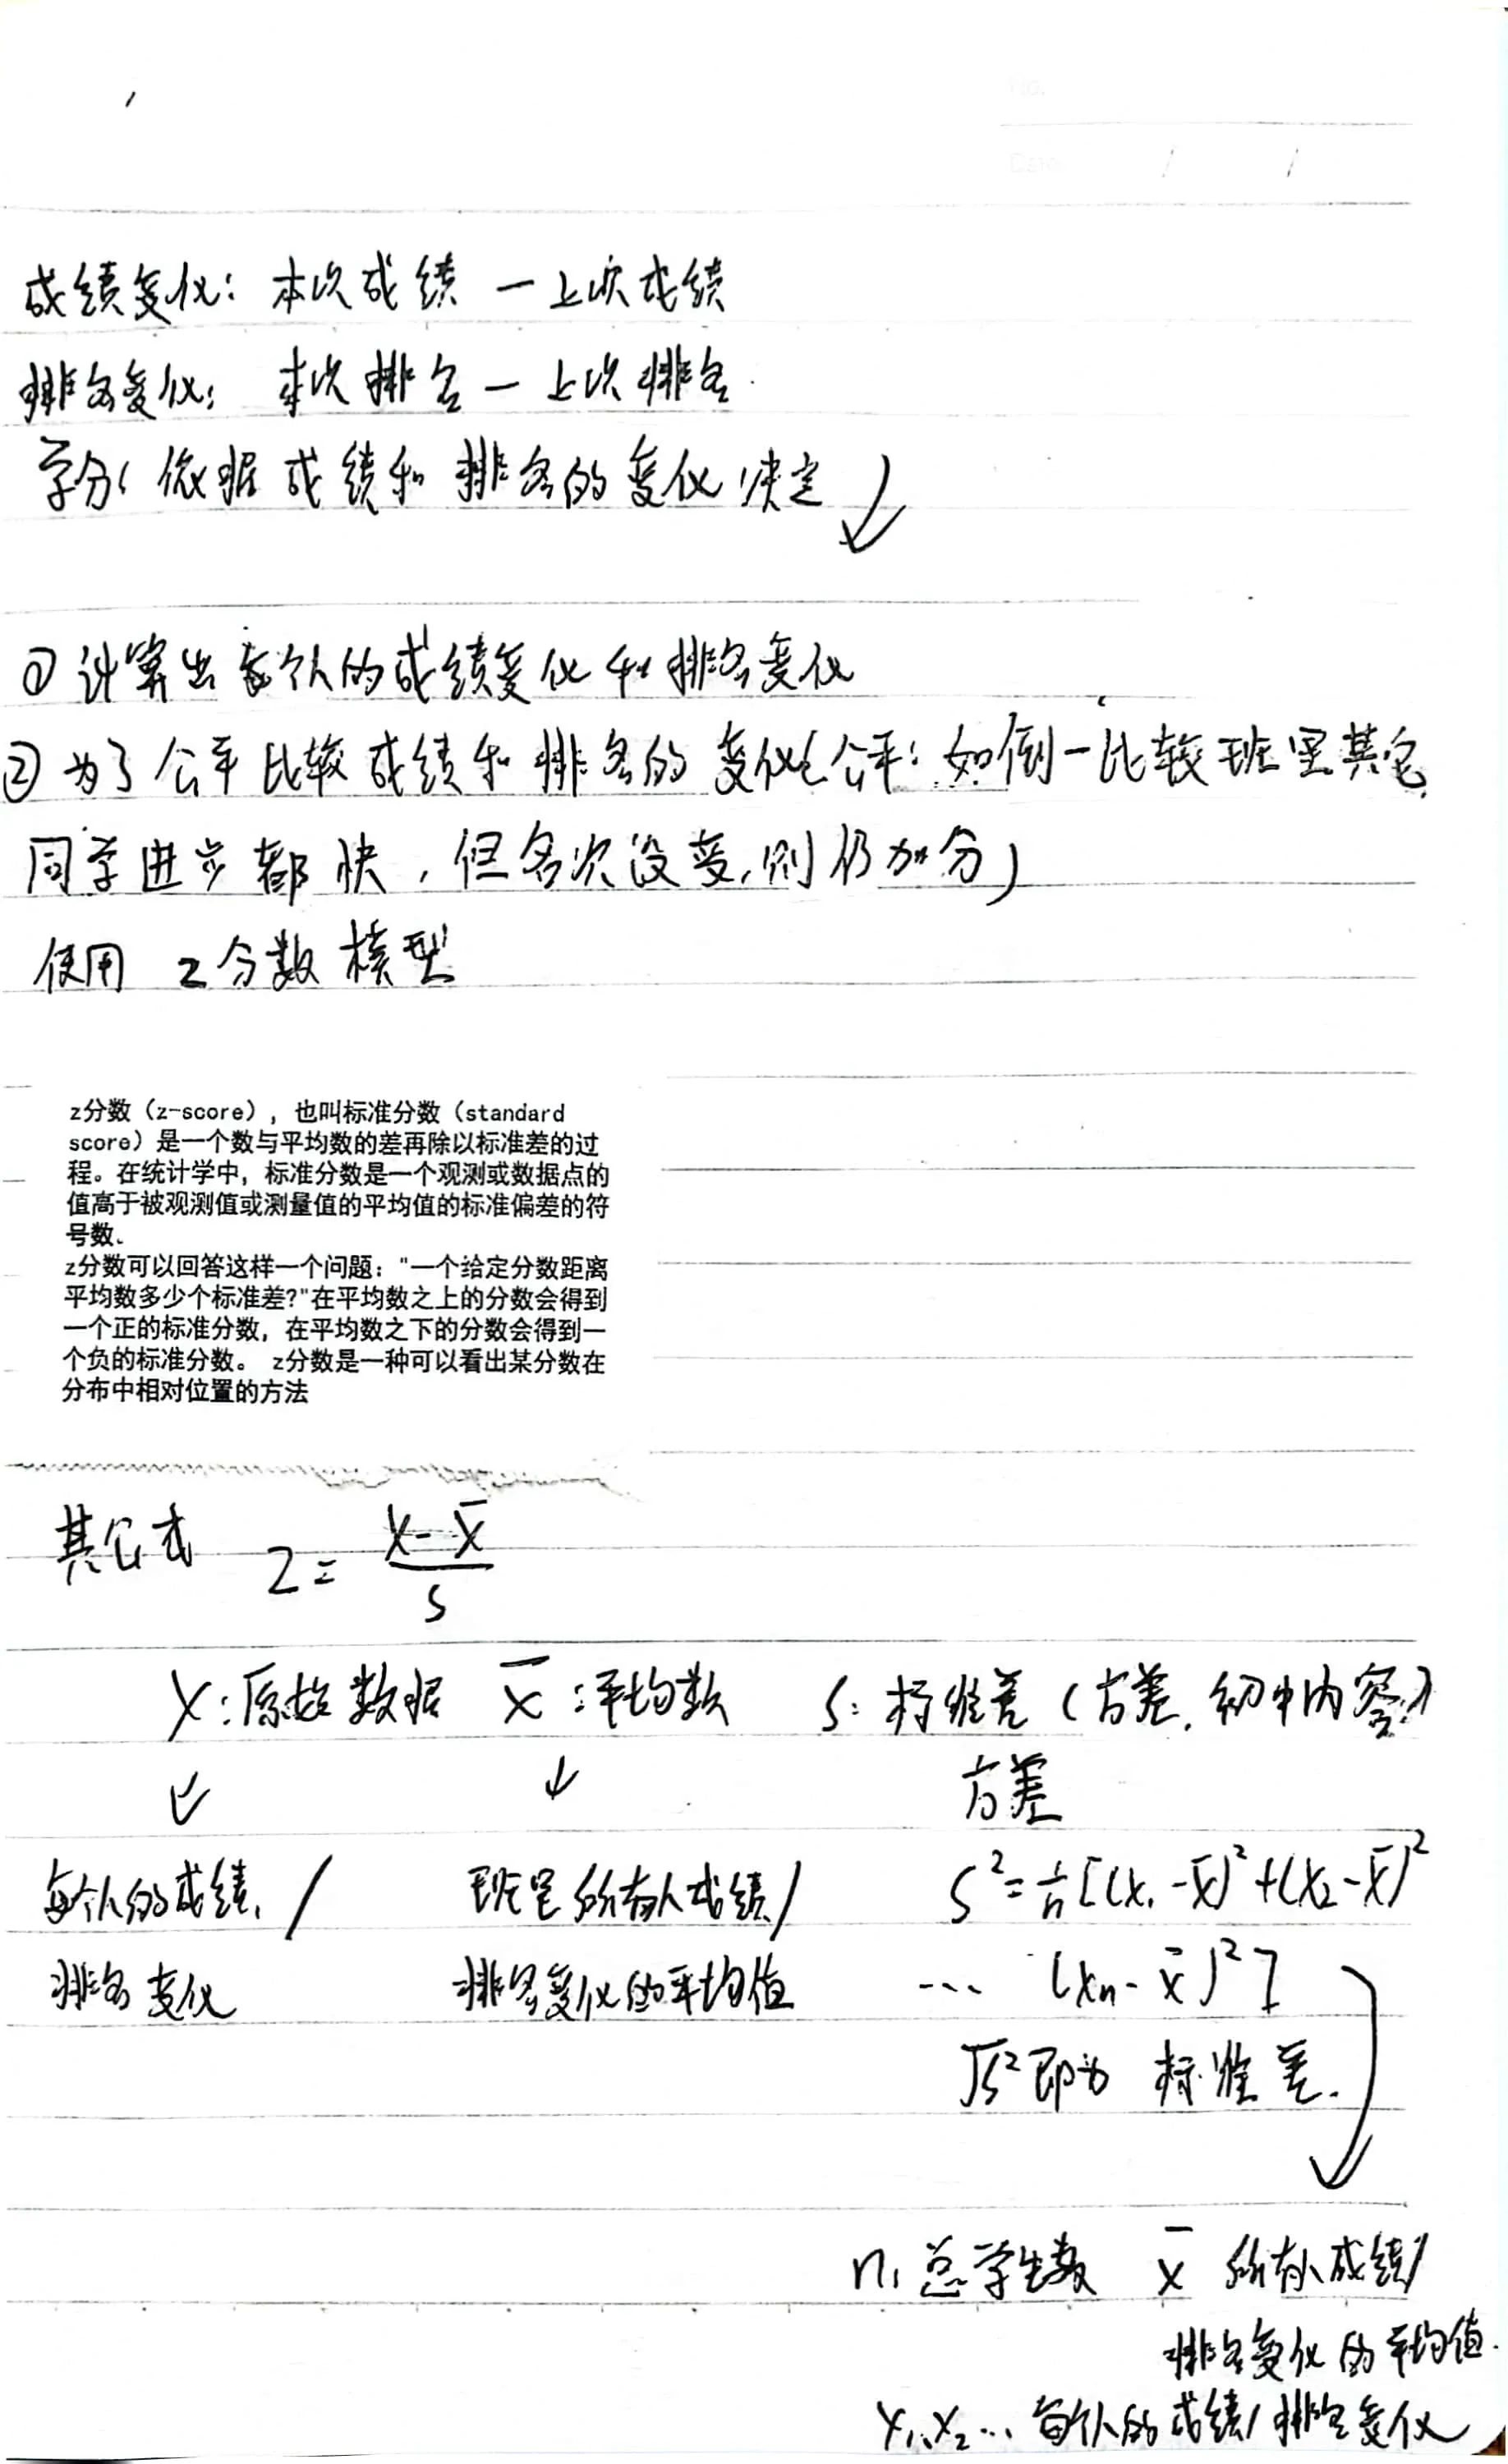 No.
Date
成绩变化: 本次成绩 — 上次成绩
排名变化: 本次排名 — 上次排名
学分(依据成绩和排名的变化决定
① 计算出每个人的成绩变化和排名变化
② 为了公平比较成绩和排名的变化(公平: 如倒一比较班里其它
同学进步都快, 但名次没变, 则仍加分)
使用 z分数模型
z分数（z-score），也叫标准分数（standard
score）是一个数与平均数的差再除以标准差的过
程。在统计学中，标准分数是一个观测或数据点的
值高于被观测值或测量值的平均值的标准偏差的符
号数、
z分数可以回答这样一个问题："一个给定分数距离
平均数多少个标准差?"在平均数之上的分数会得到
一个正的标准分数，在平均数之下的分数会得到一
个负的标准分数。 z分数是一种可以看出某分数在
分布中相对位置的方法
其公式 Z = (x - x̄) / s
x: 原始数据 x̄: 平均数 s: 标准差 (方差, 初中内容)
方差
每个人的成绩 / 班里所有人成绩 / s² = 1/n [(x₁ - x̄)² + (x₂ - x̄)²
排名变化 排名变化的平均值 … (xₙ - x̄)²]
√s² 即为 标准差.
n: 总学生数 x̄ 所有人成绩/
排名变化的平均值.
x₁, x₂ … 每个人的成绩/排名变化